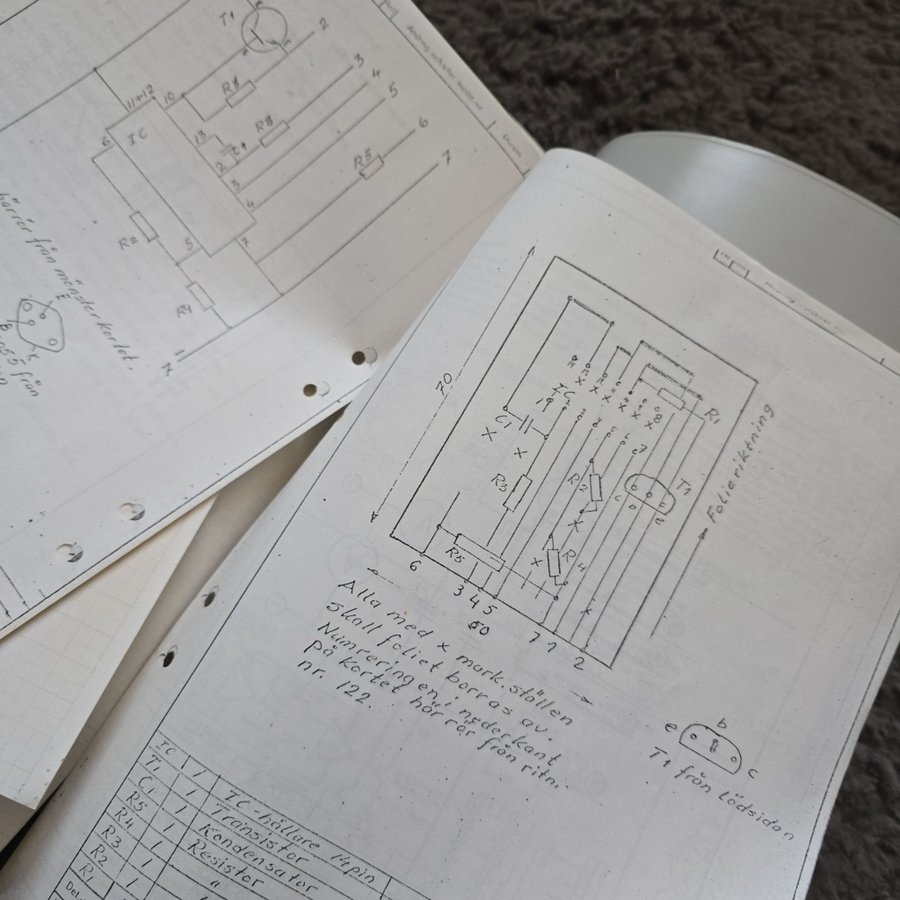 T1
2
3
4
5
6
7
11+12
10
R8
13
IC
6
2
3
4
5
7
R5
R1
7
hörrör från mönsterkortet.
E
B
C
från
70
C1
R3
R2
R4
R5
R1
T1
c
b
e
Folieriktning
6
3 4 5
7 1 2
50
Alla med x mark. ställen
skall foliet borras av.
Numreringen i nederkant
på kortet hör rör från ritn.
nr. 122.
e b c
T1 från lödsidan
IC 1 IC-hållare 14pin
T1 1 Transistor
C1 1 Kondensator
R5 1 Resistor
R4 1 "
R3 1
R2 1
R1